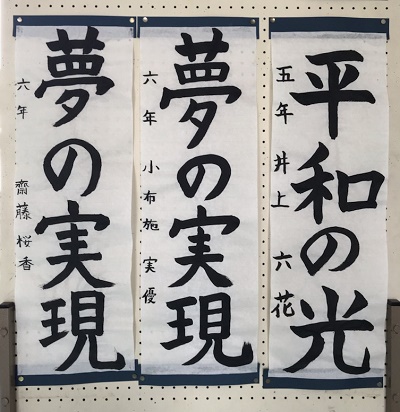 平和の光
五年 井上 六花
夢の実現
六年 小布施 実優
夢の実現
六年 齋藤 桜香